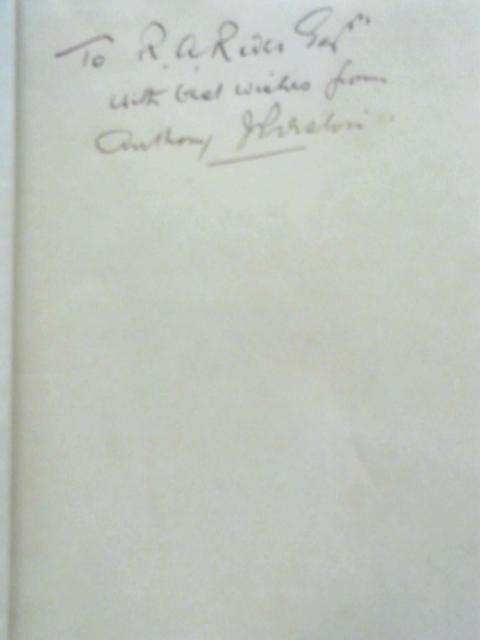 To R. A. Rider Esqre
with best wishes from
Anthony